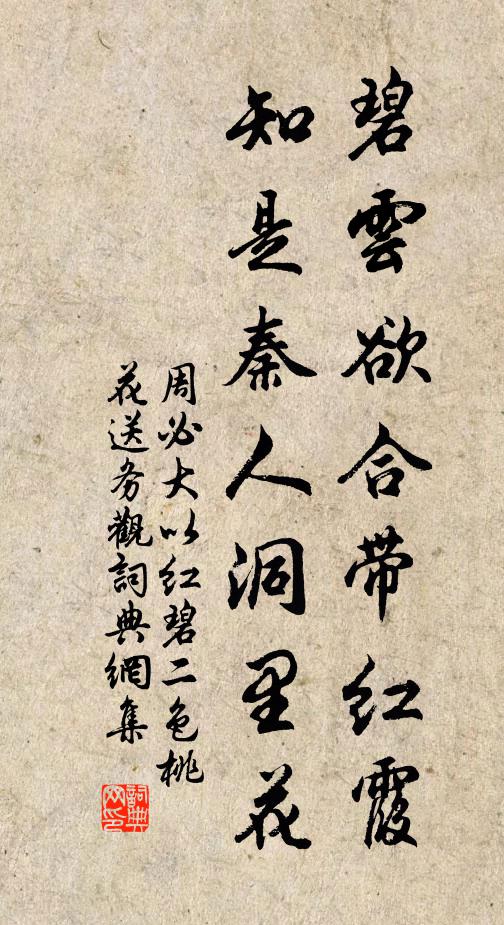 碧雲欲合带红霞
知是秦人洞里花
周必大以红碧二色桃
花送务觀詞典網集
詞典
网印